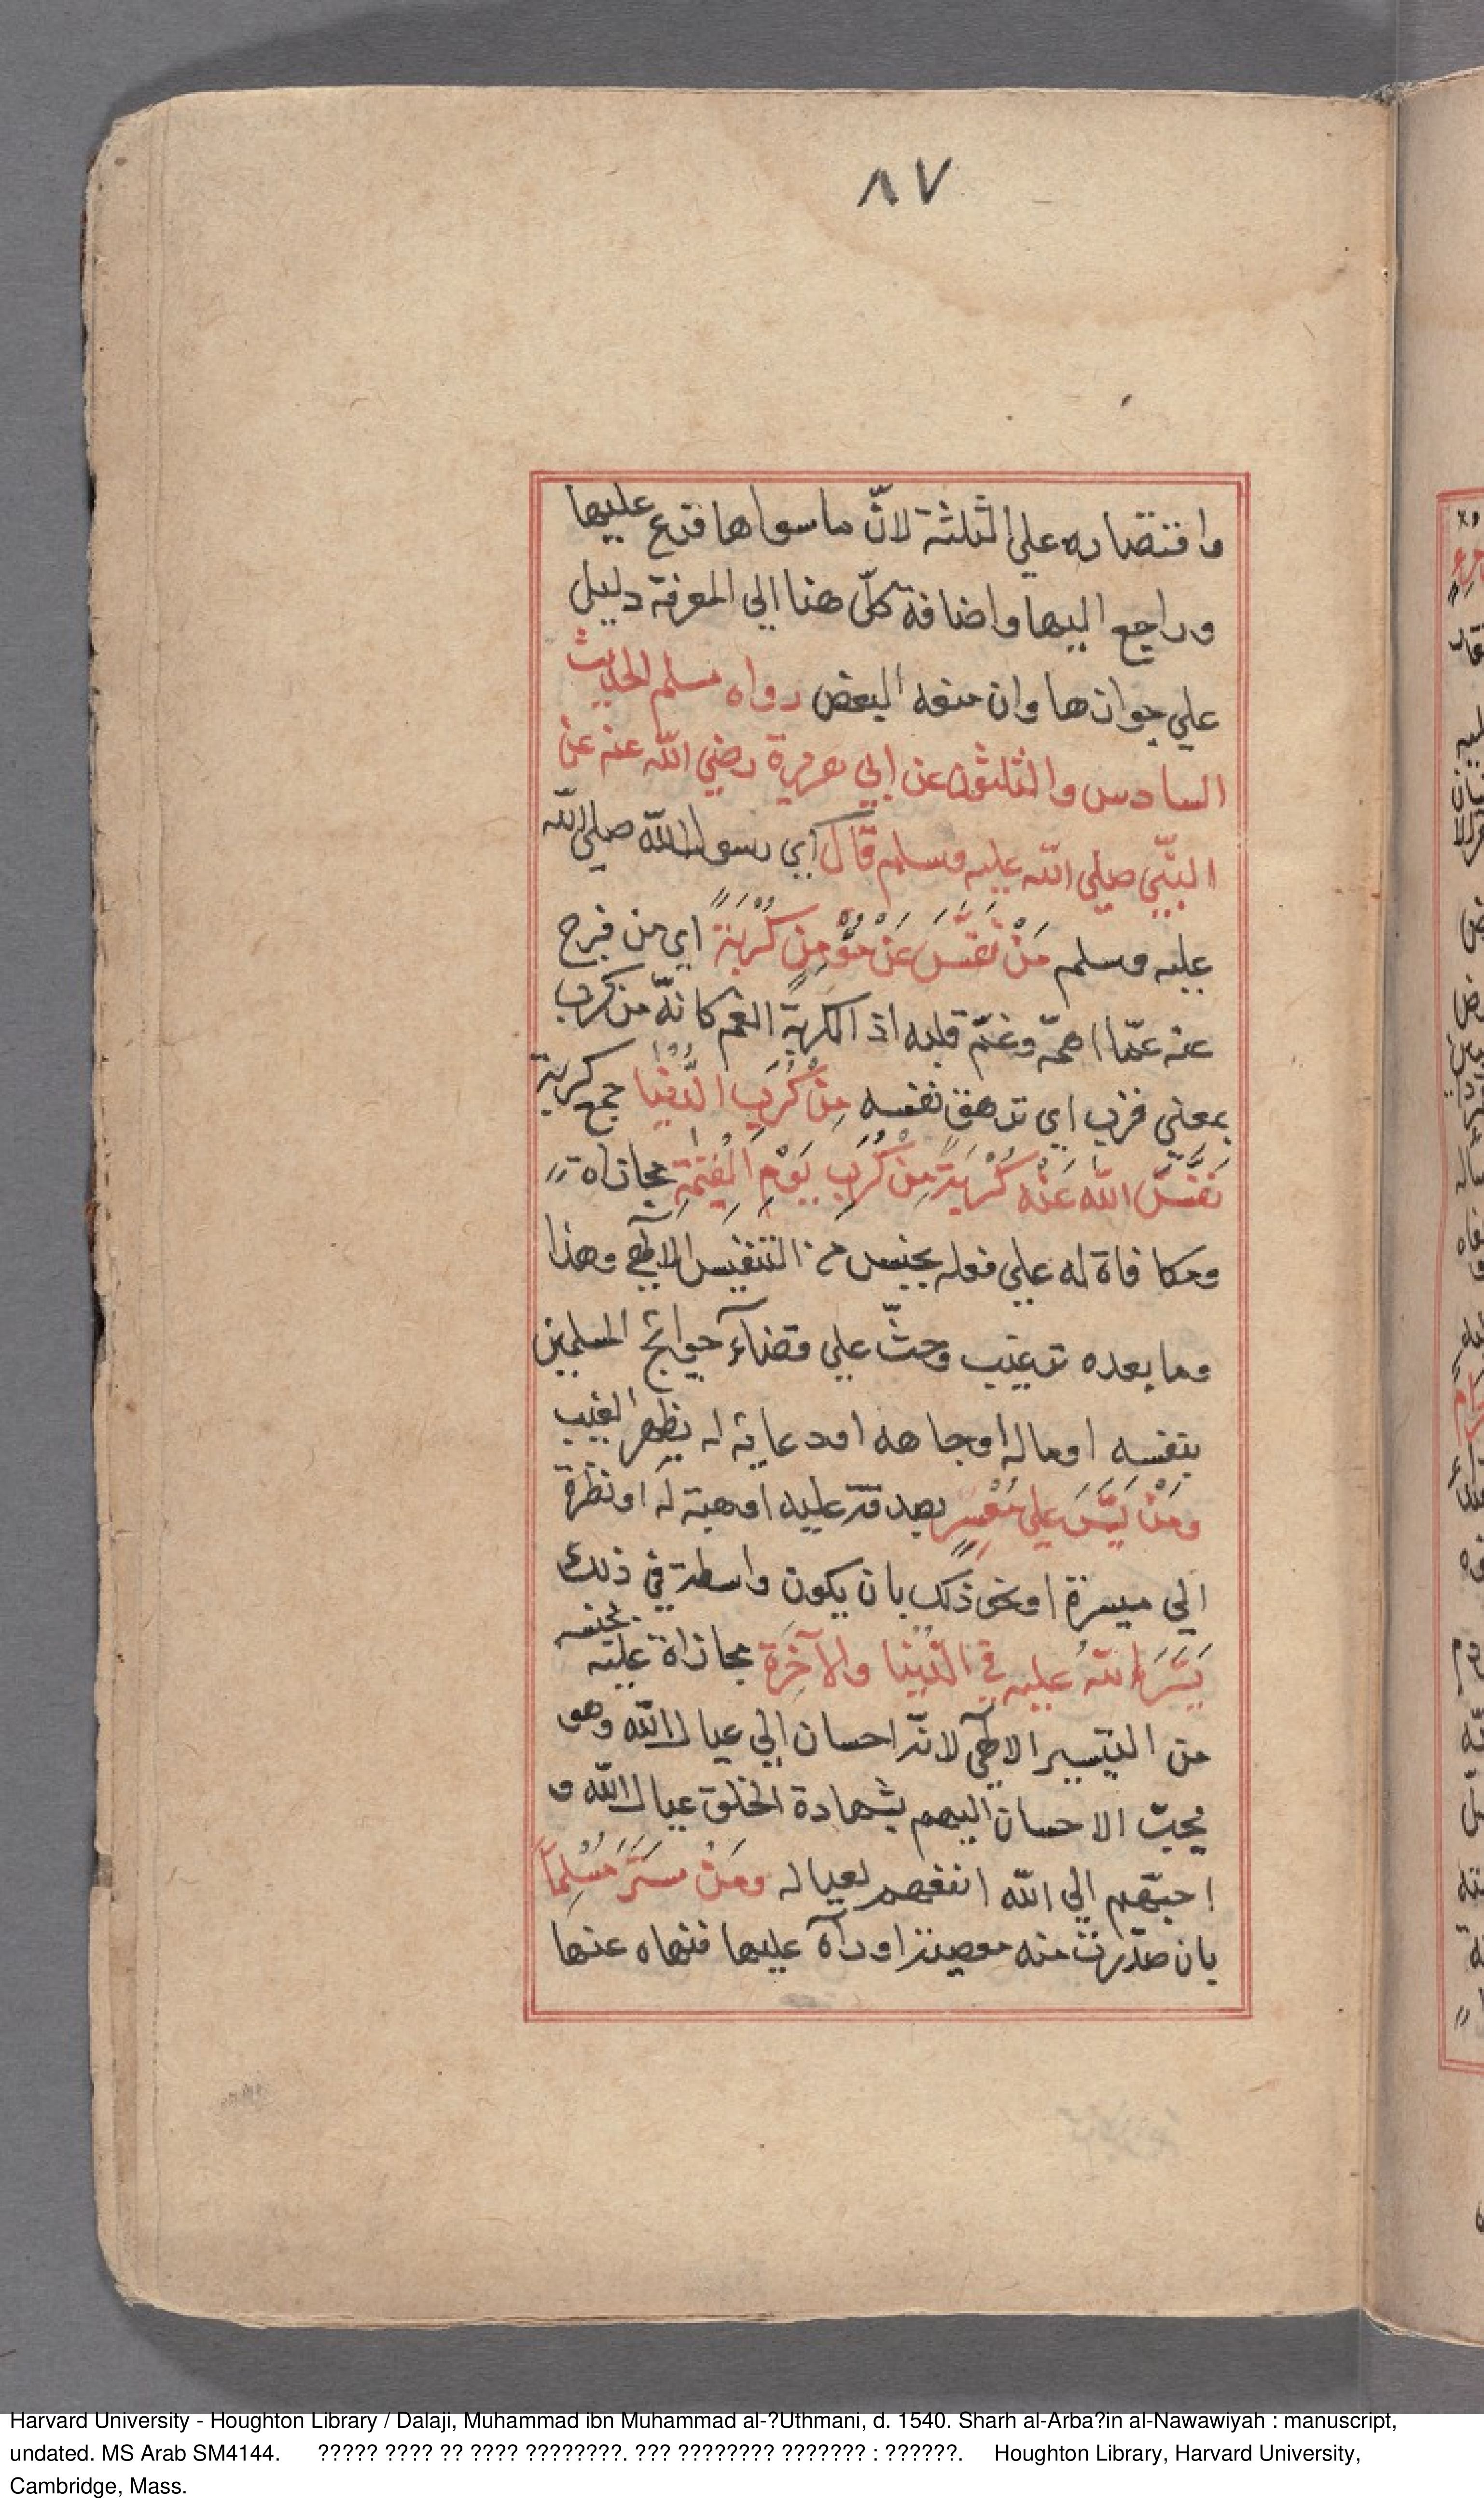 ٨٧
واقتصاره علي الثلثة لانّ ما سواها فرع عليها
وراجع اليها واضافة كلّ هنا الي المعرفة دليل
علي جوازها وان منعه البعض رواه مسلم الحديث
السادس والثلثون عن ابي هريرة رضي اللّه عنه عن
النبّي صلي اللّه عليه وسلم قال اي رسول اللّه صلي اللّه
عليه وسلم مَنْ نَفَّسَ عَنْ مُؤْمِنٍ كُرْبَةً اي من فرج
عنه عمّا اهمّه وغمّ قلبه اذ الكربة الغم كانّه من كرب
بمعني قرب اي تزهق نفسه مِنْ كُرَبِ الدُّنْيا جمع كربة
نَفَّسَ اللّه عَنْه كُرْبَةً مِنْ كُرَبِ يَوْمِ الْقِيمَةِ مجازاة
ومكافاة له علي فعله بجنسه من التنفيس الالٓهي وهذا
وما بعده ترغيب وحثّ علي قضآء حوائج المسلمين
بنفسه او ماله او جاهه او دعائه له بظهر الغيب
ومَنْ يَسَّرَ علي مُعْسِرٍ بصدقة عليه او هبة له او نظرة
الي ميسرة او نحو ذلك بان يكون واسطة في ذلك
يَسَّرَ اللّهُ عليه في الدُّنْيا والآخِرَة مجازاة عليه بجنسه
من التيسير الالٓهي لانّه احسان الي عيال اللّه وهو
يحبّ الاحسان اليهم بشهادة الخلق عيال اللّه و
احبّهم الي اللّه انفعهم لعياله ومَنْ سَتَرَ مُسْلِماً
بان صدرت منه معصية او رآه عليها فنهاه عنها
Harvard University - Houghton Library / Dalaji, Muhammad ibn Muhammad al-?Uthmani, d. 1540. Sharh al-Arba?in al-Nawawiyah : manuscript,
undated. MS Arab SM4144. ????? ???? ?? ???? ????????. ??? ???????? ??????? : ??????. Houghton Library, Harvard University,
Cambridge, Mass.